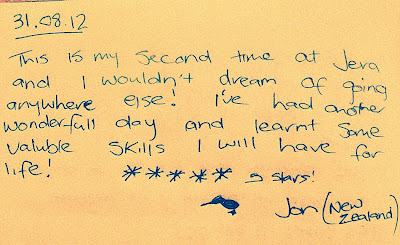 31.08.12
This is my second time at Jera
and I wouldn't dream of going
anywhere else! I've had another
wonderfull day and learnt some
valuble skills I will have for
life! ***** 5 stars!
Jon (New Zealand)